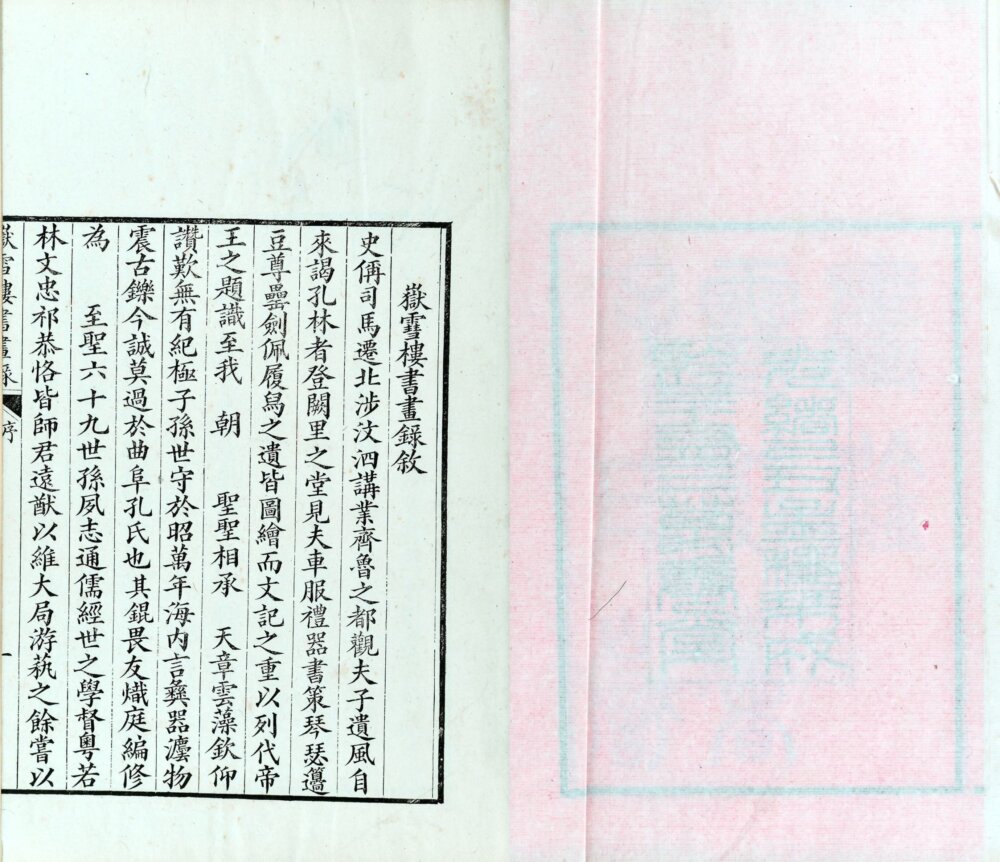 嶽雪樓書畫錄敘
史偁司馬遷北涉汶泗講業齊魯之都觀夫子遺風自
來謁孔林者登闕里之堂見夫車服禮器書策琴瑟簠
豆尊罍劍佩履舄之遺皆圖繪而文記之重以列代帝
王之題識至我 朝 聖聖相承 天章雲藻欽仰
讚歎無有紀極子孫世守於昭萬年海內言彝器灋物
震古鑠今誠莫過於曲阜孔氏也其錕畏友熾庭編修
為 至聖六十九世孫夙志通儒經世之學督粵若
林文忠祁恭恪皆師君遠猷以維大局游蓺之餘嘗以
嶽雪樓書畫錄 序 一